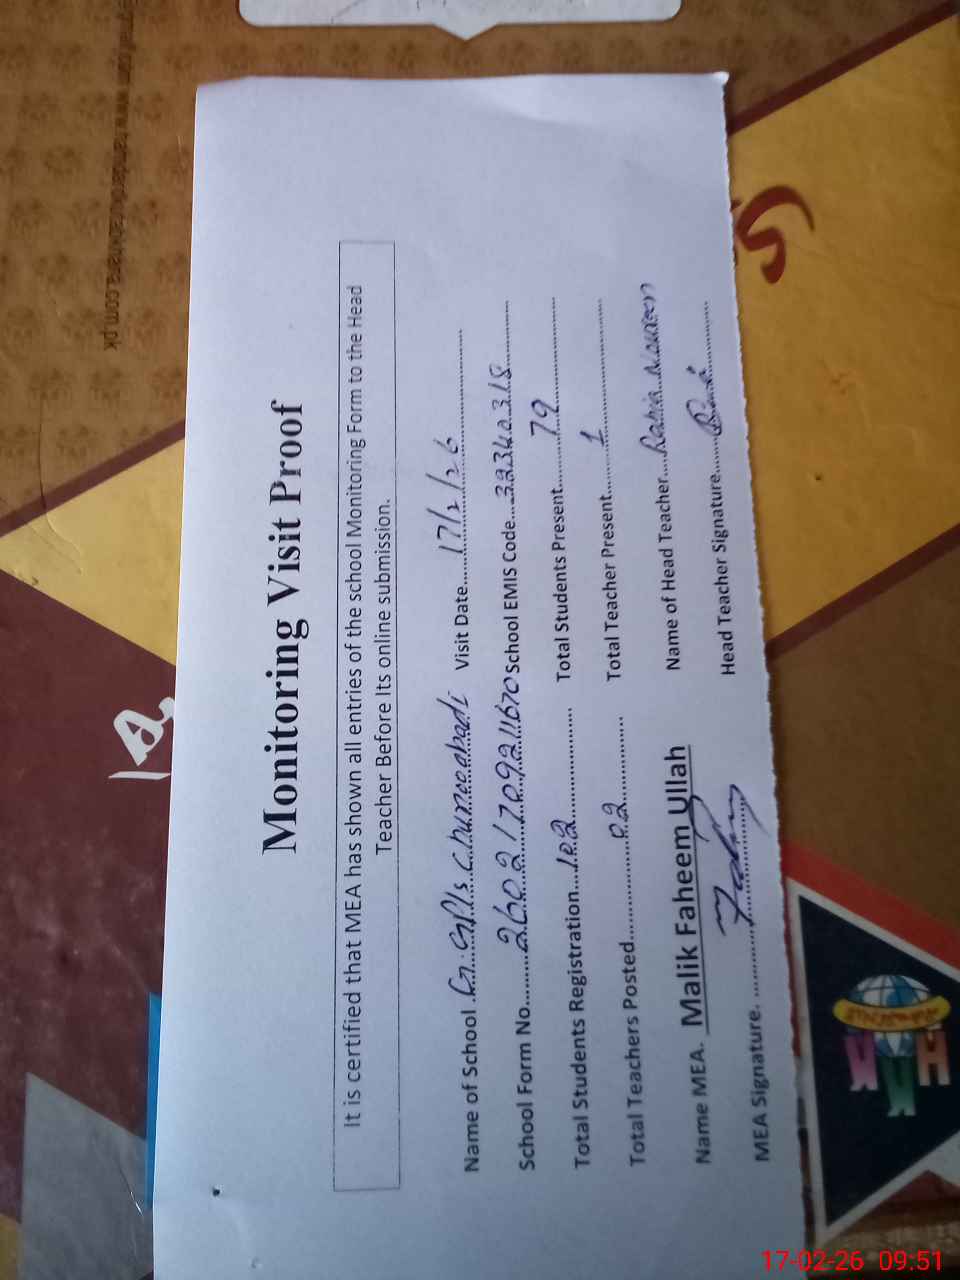 Monitoring Visit Proof
It is certified that MEA has shown all entries of the school Monitoring Form to the Head
Teacher Before Its online submission.
Name of School. G.GPS Chuneoabadi Visit Date 17/2/26
School Form No. 26021709211670 School EMIS Code 32340318
Total Students Registration 102 Total Students Present 79
Total Teachers Posted 02 Total Teacher Present 1
Name MEA. Malik Faheem Ullah Name of Head Teacher Rabia Noureen
MEA Signature. Head Teacher Signature
17-02-26 09:51